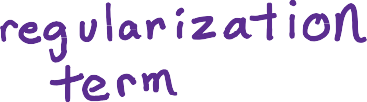 regularization
term